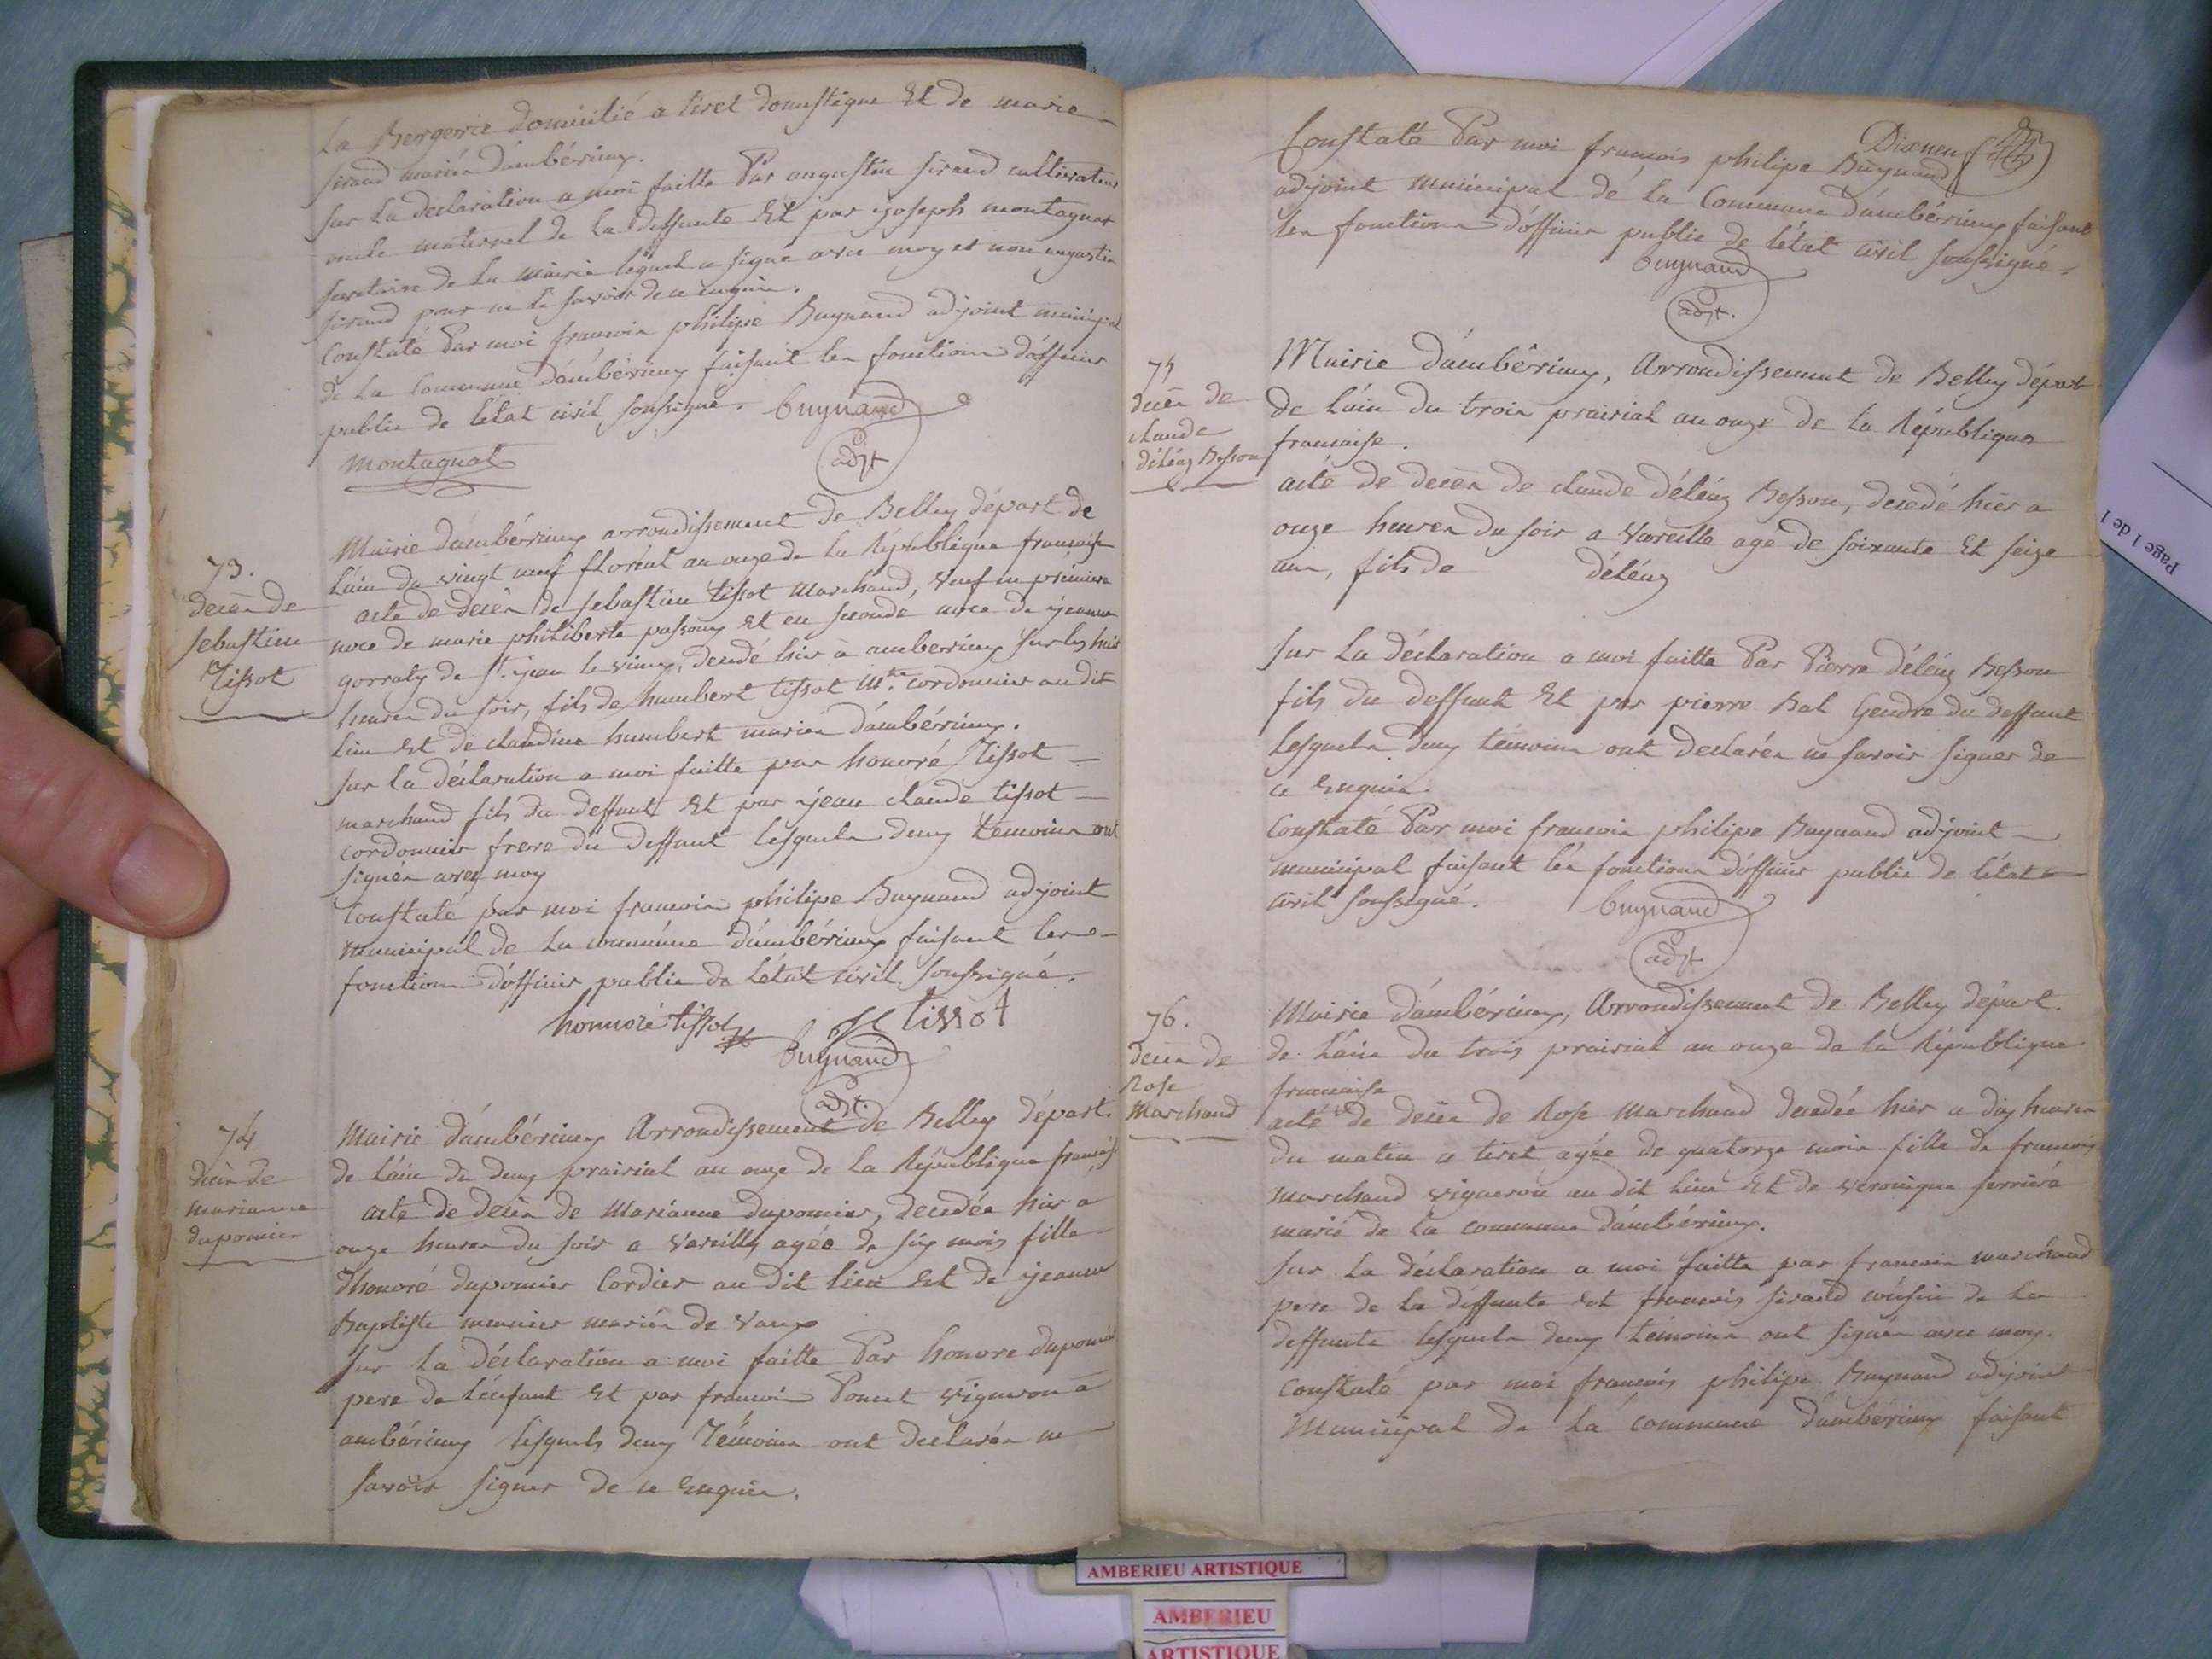 La Bergerie domicilié a tiret domestique Et de marie
sirand mariés d'ambérieux.
sur La declaration a moi faitte Par augustin sirand cultivateur
oncle maternel de La deffunte Et par joseph montagnat
secretaire de La mairie lequel a signé avec moy et non augustin
sirand pour ne le savoir de ce enquis.
Constaté Par moi francois philipe Buynand adjoint municipal
de La Commune d'ambérieux faisant les fonctions d'officier
public de l'état civil soussigné. buynand
montagnat
adjt
73.
decès de
sebastien
Tissot
Mairie d'ambérieux arrondissement de Belley départ de
L'ain du vingt neuf floréal an onze de La République francaise
acte de decès de sebastien tissot marchand, veuf en première
noce de marie philiberte passoux Et en seconde noce de jeanne
gorraty de st. jean le vieux, decedé hier à amberieux sur les huit
heures du soir, fils de humbert tissot Mtre. cordonnier au dit
Lieu Et de claudine humbert mariés d'ambérieux.
sur la déclaration a moi faitte par honoré Tissot
marchand fils du deffunt Et par jean claude tissot
cordonnier frere du deffunt lesquels deux temoins ont
signés avec moy
Constaté par moi francois philipe Buynand adjoint
Municipal de La commune d'ambérieux faisant les
fonctions d'officier public de l'état civil soussigné.
honnoré tissot JC tissot
buynand
adjt.
74
decès de
marianne
dupomier
Mairie d'ambérieux Arrondissement de Belley départ.
de L'ain du deux prairial an onze de La République francaise
acte de decès de Marianne dupomier, decedée hier a
onze heures du soir a Vareilles agée de six mois fille
d'honoré dupomier Cordier au dit lieu Et de jeanne
Baptiste meunier mariés de Vaux
sur La déclaration a moi faitte Par honore dupomier
pere de L'enfant Et par francois Ponset vigneron a
ambérieux lesquels deux Témoins ont declarés ne
savoir signer de ce Enquis.
Dixneuf
Constaté Par moi francois philipe Buynand
adjoint municipal de la Commune d'ambérieux faisant
les fonctions d'officier public de l'état civil soussigné.
buynand
adjt.
75
decès de
claude
déléaz Besson
Mairie d'ambérieux, Arrondissement de Belley départ
de L'ain du trois prairial an onze de La République
francaise.
acte de decès de claude déléaz Besson, decedé hier a
onze heures du soir a Vareille agé de soixante Et seize
ans, fils de déléaz
sur La déclaration a moi faitte Par Pierre déléaz Besson
fils du deffunt Et par pierre Bal Gendre du deffunt
Lesquels deux témoins ont declarés ne savoir signer de
ce Enquis.
Constaté Par moi francois philipe Buynand adjoint
municipal faisant les fonctions d'officier public de l'état
civil soussigné. buynand
adjt
76.
decès de
Rose
Marchand
Mairie d'ambérieux, Arrondissement de Belley départ.
de L'ain du trois prairial an onze de la République
francaise
acte de decès de Rose Marchand decedée hier a dix heures
du matin a tiret agée de quatorze mois fille de francois
Marchand vigneron au dit lieu Et de Veronique ferriére
mariés de La commune d'ambérieux.
sur La déclaration a moi faitte par francois marchand
pere de La deffunte et francois sirand cousin de La
deffunte lesquels deux témoins ont signés avec moy.
Constaté par moi francois philipe Buynand adjoint
Municipal de La commune d'ambérieux faisant
Page 1 de 1
AMBERIEU ARTISTIQUE
AMBERIEU
ARTISTIQUE